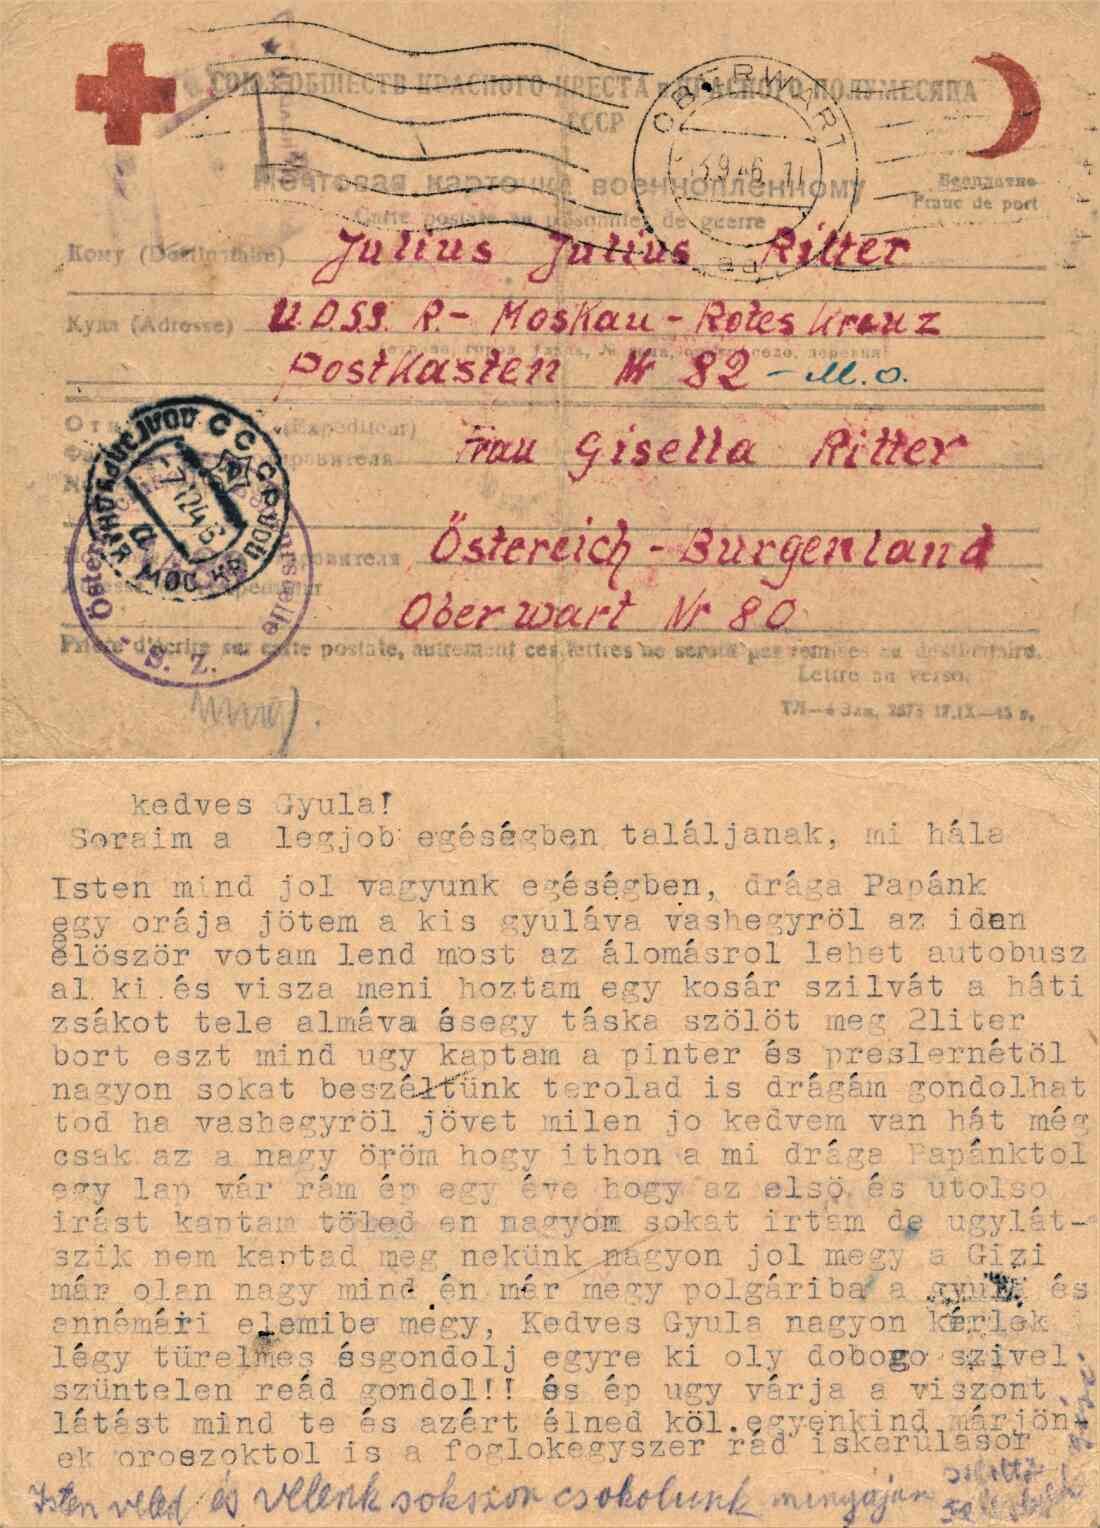 СОЮЗ ОБЩЕСТВ КРАСНОГО КРЕСТА и КРАСНОГО ПОЛУМЕСЯЦА
СССР
OBERWART
3.9.46
Почтовая карточка военнопленному
Carte postale au prisonnier de guerre
Бесплатно
Franc de port
Кому (Destinataire)
Julius Julius Ritter
Куда (Adresse)
U.D.S.S.R.- Moskau - Rotes Kreuz
Postkasten Nr 82 - M.o.
(Expediteur)
Frau Gisella Ritter
Österreich - Burgenland
Oberwart Nr 80
МОСКВА
S. Z.
Prière d'écrire sur carte postale, autrement ces lettres ne seront pas remises au destinataire.
Lettre au verso.
kedves Gyula!
Soraim a legjob egéségben találjanak, mi hála
Isten mind jol vagyunk egéségben, drága Papánk
egy orája jötem a kis gyuláva vashegyröl az iden
elöször votam lend most az álomásrol lehet autobusz
al ki és visza meni hoztam egy kosár szilvát a háti
zsákot tele almáva ésegy táska szölöt meg 2liter
bort eszt mind ugy kaptam a pinter és preslernétöl
nagyon sokat beszéltünk terolad is drágám gondolhat
tod ha vashegyröl jövet milen jo kedvem van hát még
csak az a nagy öröm hogy ithon a mi drága Papánktol
egy lap vár rám ép egy éve hogy az elsö és utolso
irást kaptam töled en nagyom sokat irtam de ugylát-
szik nem kaptad meg nekünk nagyon jol megy a Gizi
már olan nagy mind én már megy polgáriba a gyula és
annémári elemibe megy, Kedves Gyula nagyon kérlek
légy türelmes ésgondolj egyre ki oly dobogo szivel
szüntelen reád gondol!! és ép ugy várja a viszont
látást mind te és azért élned köl.egyenkind márjön
ek oroszoktol is a foglokegyszer rád iskerülasor
Isten veled és velenk sokszor csokolunk minyáján